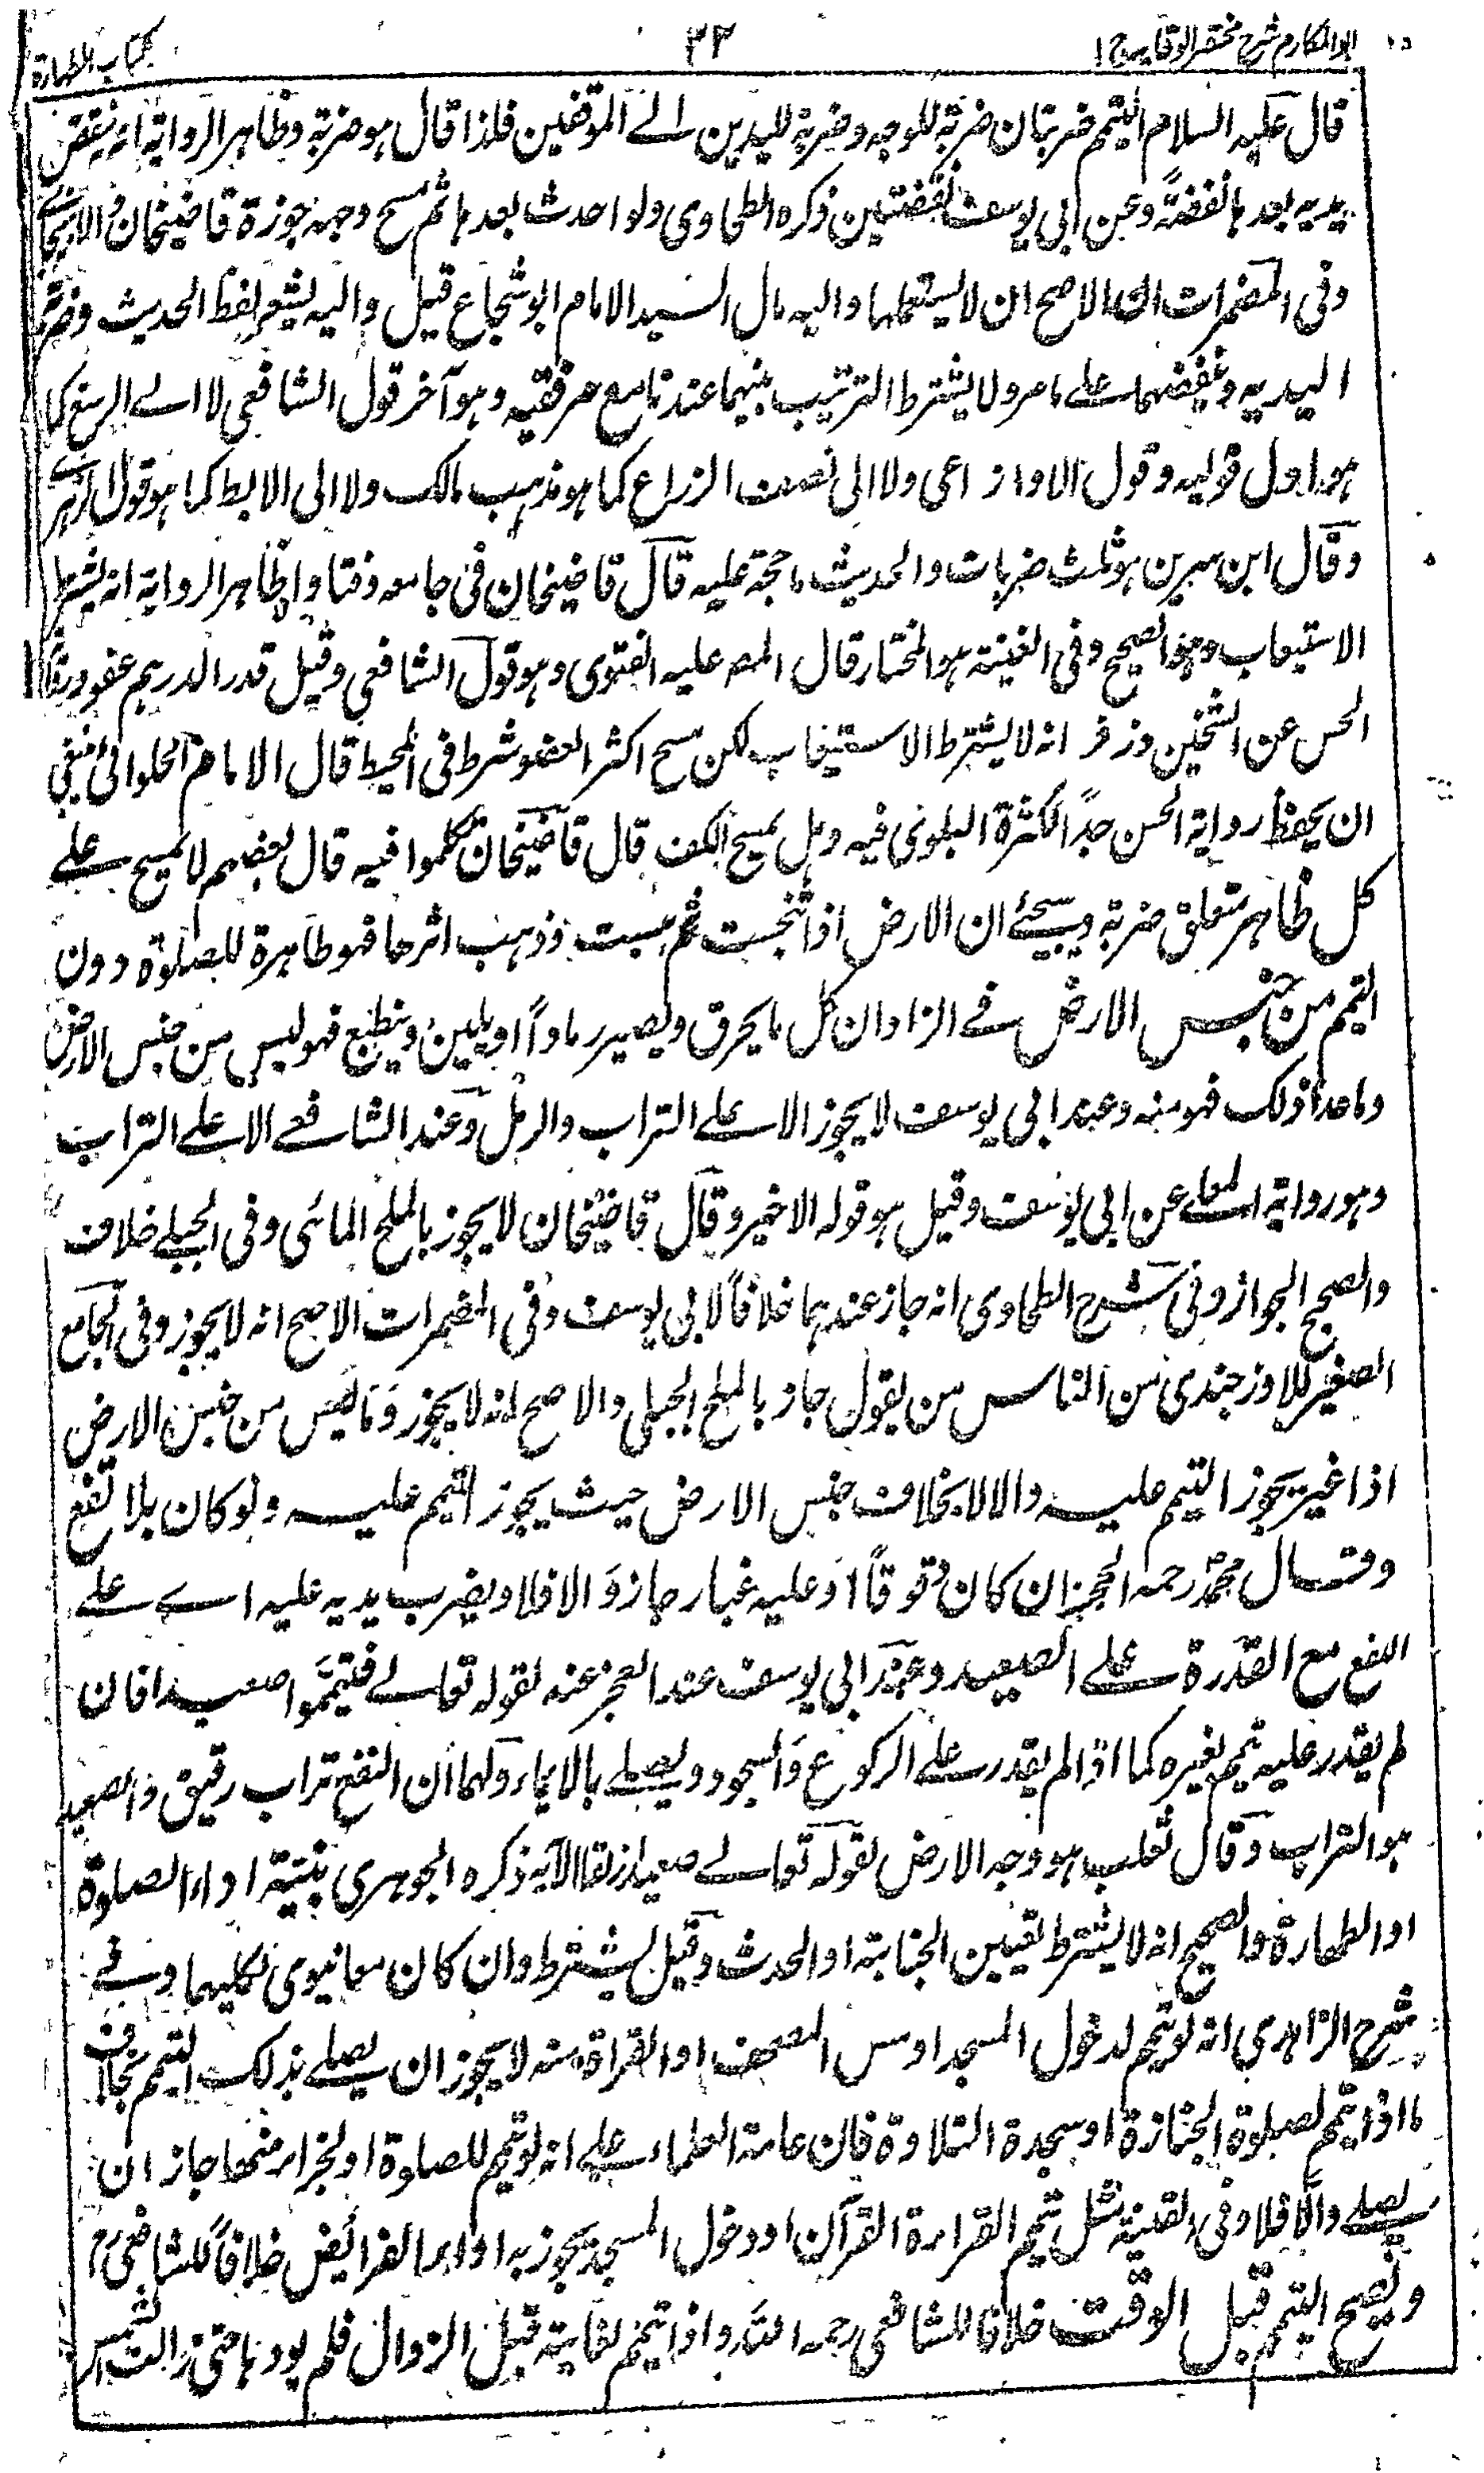 ابو المكارم شرح مختصر الوقايه ج ا
٣٢
كتاب الطهارة
قال عليه السلام التيمم ضربتان ضربة للوجه وضربة لليدين الے المرفقين فلذا قال هو ضربة وظاهر الرواية انه ينفض
يديه بعدها نفضةً وعن ابي يوسف نفضتين ذكره الطحاوى ولو احدث بعدها ثم مسح وجهه جوزه قاضيخان والاسبيجابے
وفى المضمرات ان الاصح ان لا يستعملها واليه مال السيد الامام ابو شجاع قيل واليه يشعر لفظ الحديث وضربة
اليديه ونفضهما علے ما مر ولا يشترط الترتيب بينهما عندنا مع مرفقيه وهو آخر قول الشافعي لا الے الرسغ كما
هو اول قوليه وقول الاوزاعى ولا الى نصف الزراع كما هو مذهب مالك ولا الى الابط كما هو قول الزهرے
وقال ابن سيرين هو ثلث ضربات والحديث حجة عليه قال قاضيخان فى جامعه وفتاواه ظاهر الرواية انه يشترط
الاستيعاب وهو الصحيح وفى الغينة هو المختار قال المصـ عليه الفتوى وهو قول الشافعي وقيل قدر الدرهم عفو وروى
الحسن عن الشيخين وزفر انه لا يشترط الاستيعاب لكن مسح اكثر العضو شرط فى المحيط قال الامام الحلوائى ينبغى
ان يحفظ رواية الحسن جداً لكثرة البلوىٰ فيه وهل يمسح الكف قال قاضيخان تكلموا فيه قال بعضهم لا يمسح علے
كل ظاهر متعلق ضربة وسيجئے ان الارض اذا تنجست ثم يبست وذهب اثرها فهو طاهرة للصلوة دون
التيمم من جنس الارض فے الزاد ان كل ما يحرق ويصير رماداً او يلين وينطبع فهو ليس من جنس الارض
وما عدا ذلك فهو منه وعند ابي يوسف لا يجوز الا علے التراب والرمل وعند الشافعے الا علے التراب
وهو رواية المعلے عن ابي يوسف وقيل هو قوله الاخير وقال قاضيخان لا يجوز بالملح المائى وفى الجبلے خلاف
والصحيح الجواز وفى شرح الطحاوى انه جاز عندهما خلافاً لابي يوسف وفى المضمرات الاصح انه لا يجوز وفى الجامع
الصغير للاوزجندى من الناس من يقول جاز بالملح الجبلى والاصح انه لا يجوز وما ليس من جنس الارض
اذا غبر يجوز التيمم عليه والا لا بخلاف جنس الارض حيث يجوز التيمم عليه ولو كان بلا نقع
وقال محمدؒ رحمه الحجر ان كان مدقوقاً او عليه غبار جاز وَ الا فلا ويضرب يديه عليه اے علے
النقع مع القدرة علے الصعيد وعند ابي يوسف عند العجز عنه لقوله تعالے فتيمموا صعيدا فان
لم يقدر عليه تيمم بغيره كما اذا لم يقدر علے الركوع وَالسجود ويصلے بالايماء ولهما ان النقع تراب رقيق والصعيد
هو التراب وقال ثعلب هو وجه الارض لقوله تعالے صعيدا زلقا الآية ذكره الجوهرى بنية اداء الصلوة
او الطهارة والصحيح انه لا يشترط تعيين الجنابة او الحدث وقيل يشترط وان كان معا ينوى كليهما وفے
شرح الزاهدي انه لو تيمم لدخول المسجد او مس المصحف او القراة منه لا يجوز ان يصلے بذلك التيمم بخلاف
ما اذا تيمم لصلوة الجنازة او سجدة التلاوة فان عامة العلماء علے انه لو تيمم للصلوة او لجزء منها جاز ان
يصلے والّا فلا وفى القنية مثل تيمم القراءة القرآن او دخول المسجد يجوز به اداء الفرائض خلافاً للشافعىؒ
ويصح التيمم قبل الوقت خلافا للشافعى رحمه اللّٰه واذا تيمم لفايتة قبل الزوال فلم يودها حتى زالت الشمس